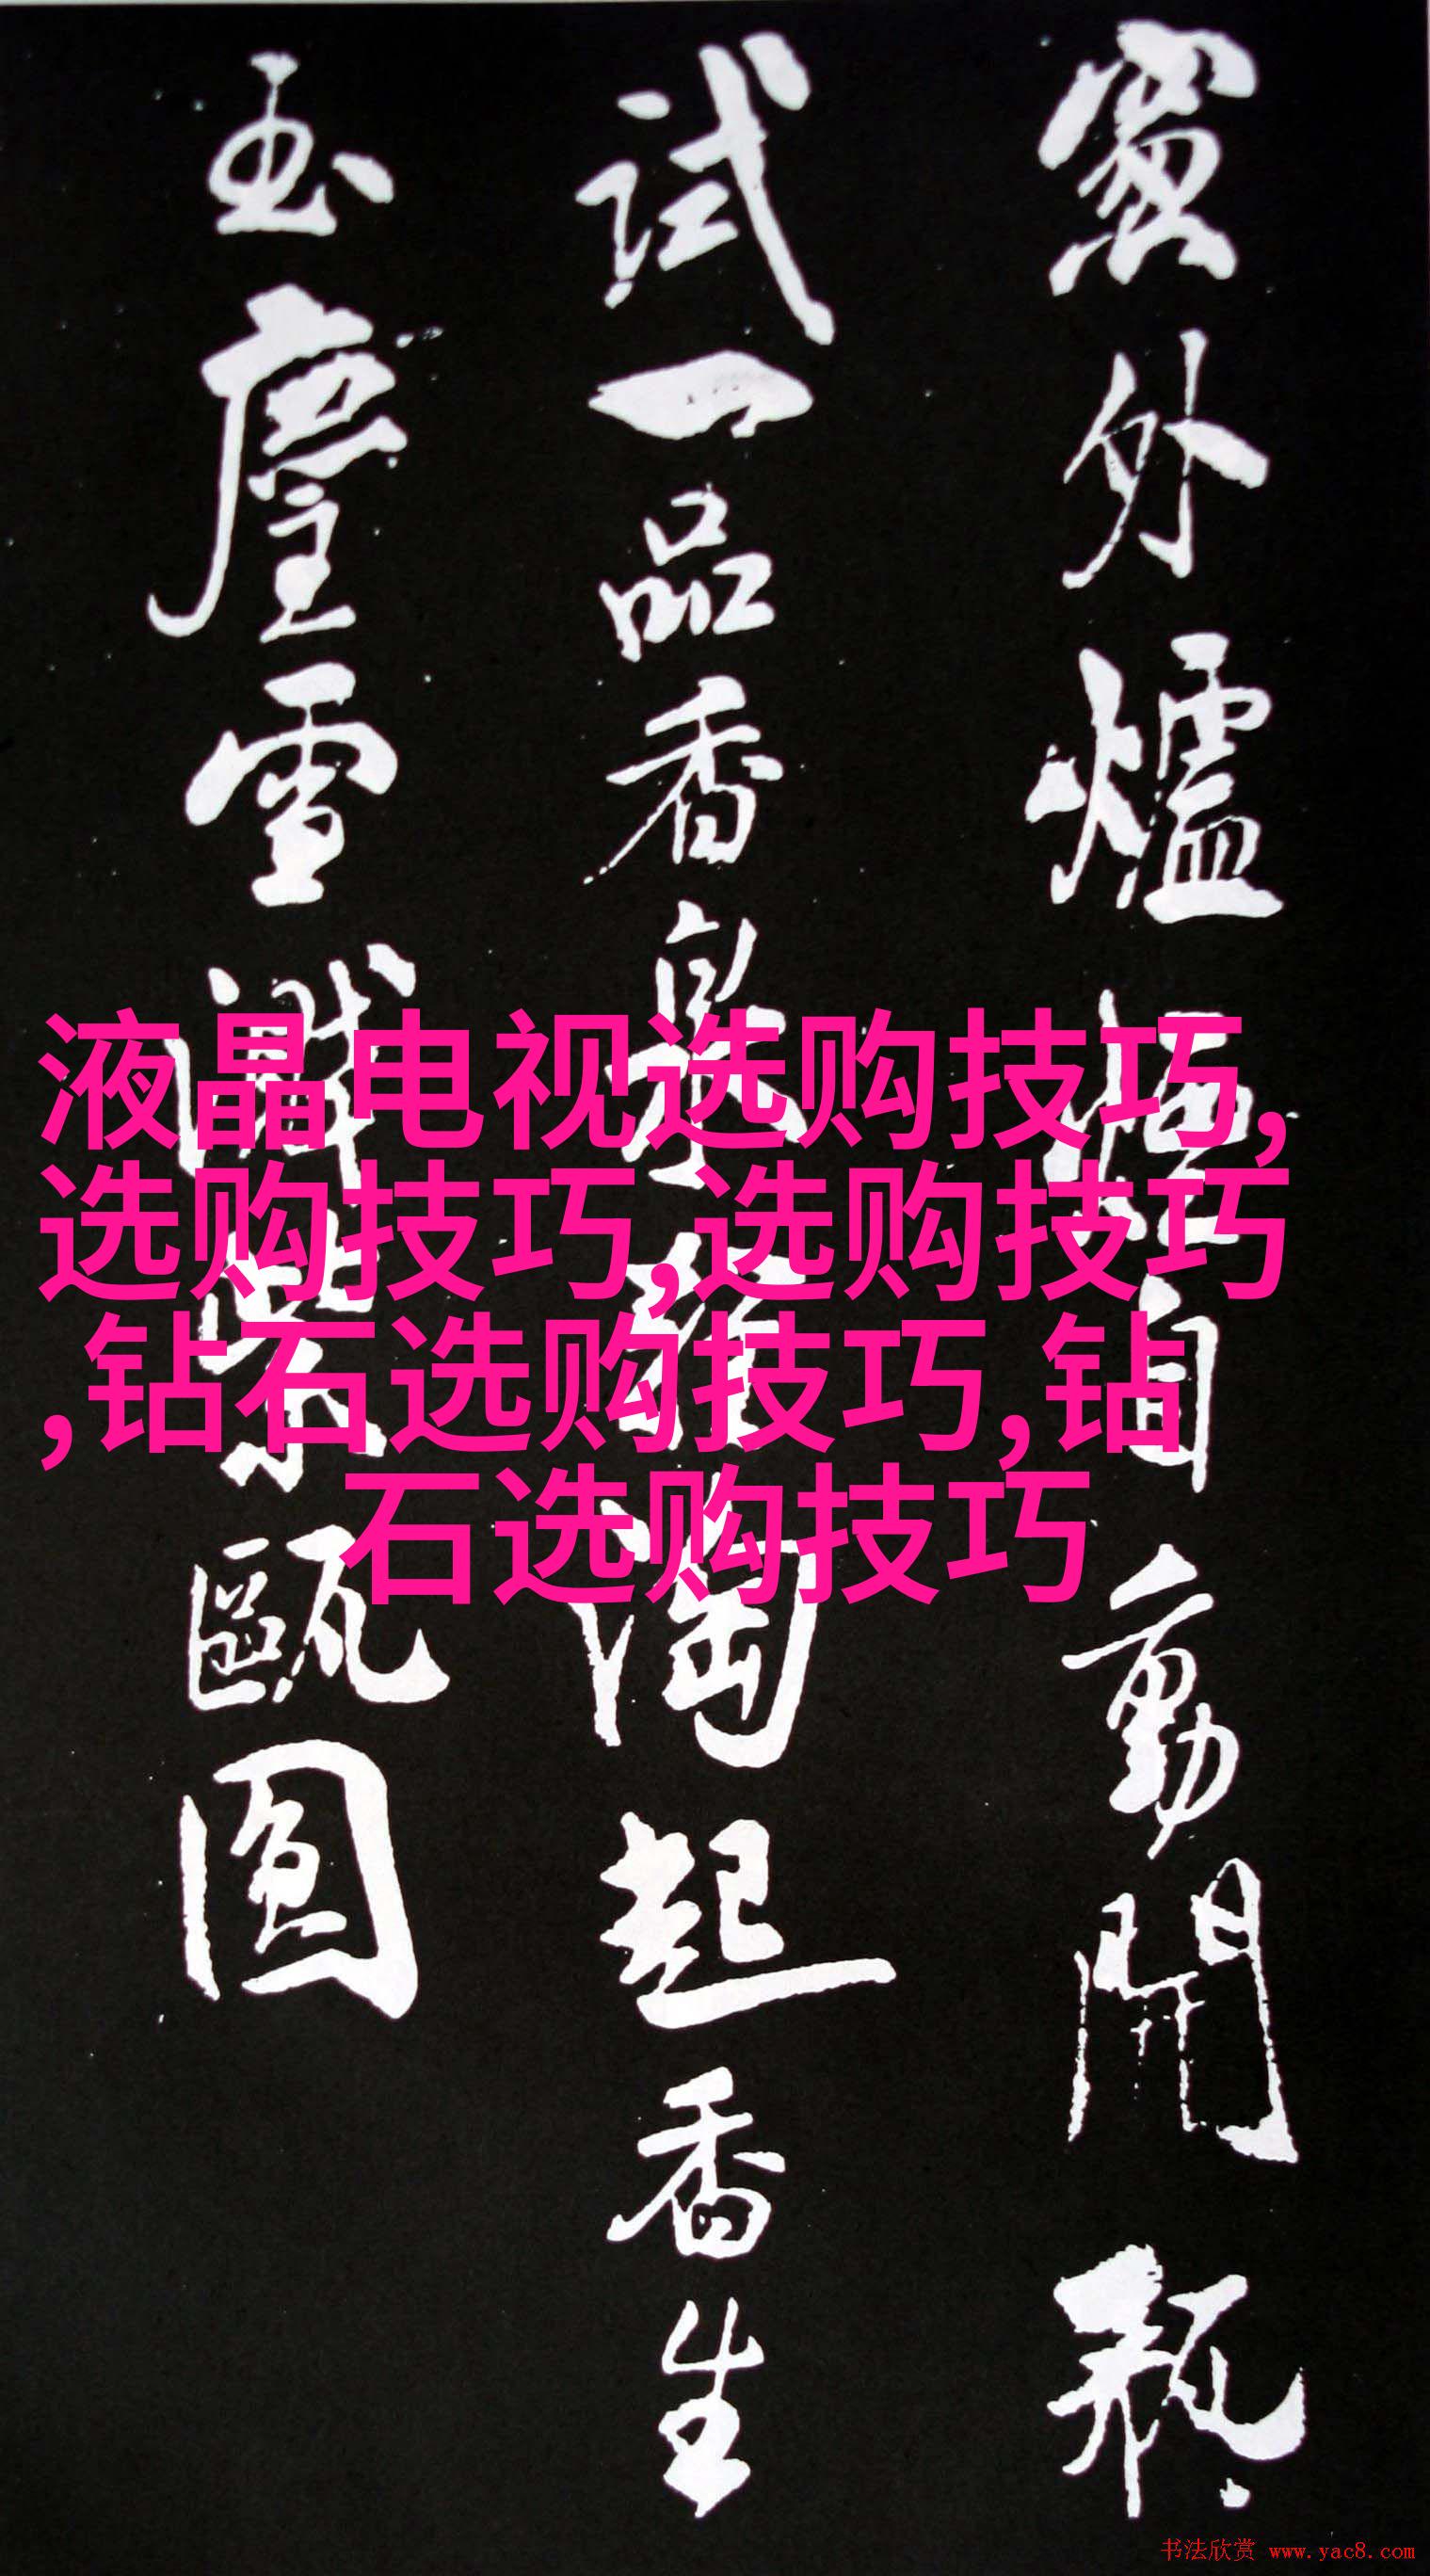 窻外爐自動開瓶
試一品香泉淘起香生
玉麈雪濺紫甌圓
液晶电视选购技巧,
选购技巧,选购技巧
,钻石选购技巧,钻
石选购技巧
书法欣赏 www.yac8.com